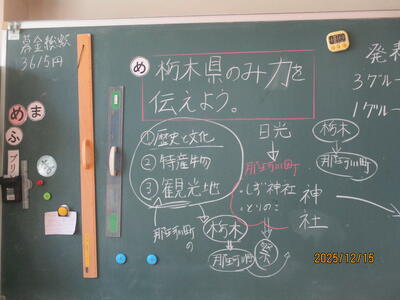 募金総額
3615円
め
栃木県のみ力を
伝えよう。
発表
3グルー
1グルー
ま
め
ふ
プリ
①歴史と文化
②特産物
③観光地
日光
那珂川町
・しぎ神社
・とりのこ
神社
祭
栃木
那珂川町
那珂川町
の
栃木
那珂川町
2025/12/15